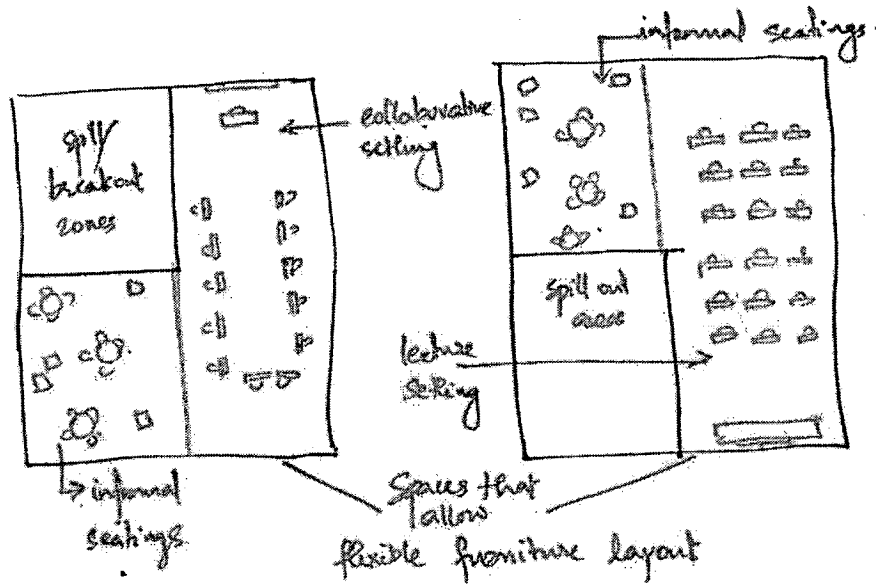 informal seatings.
spill/
breakout
zones
collaborative
setting
spill out
area
lecture
setting
informal
seatings
Spaces that
allow
flexible furniture layout